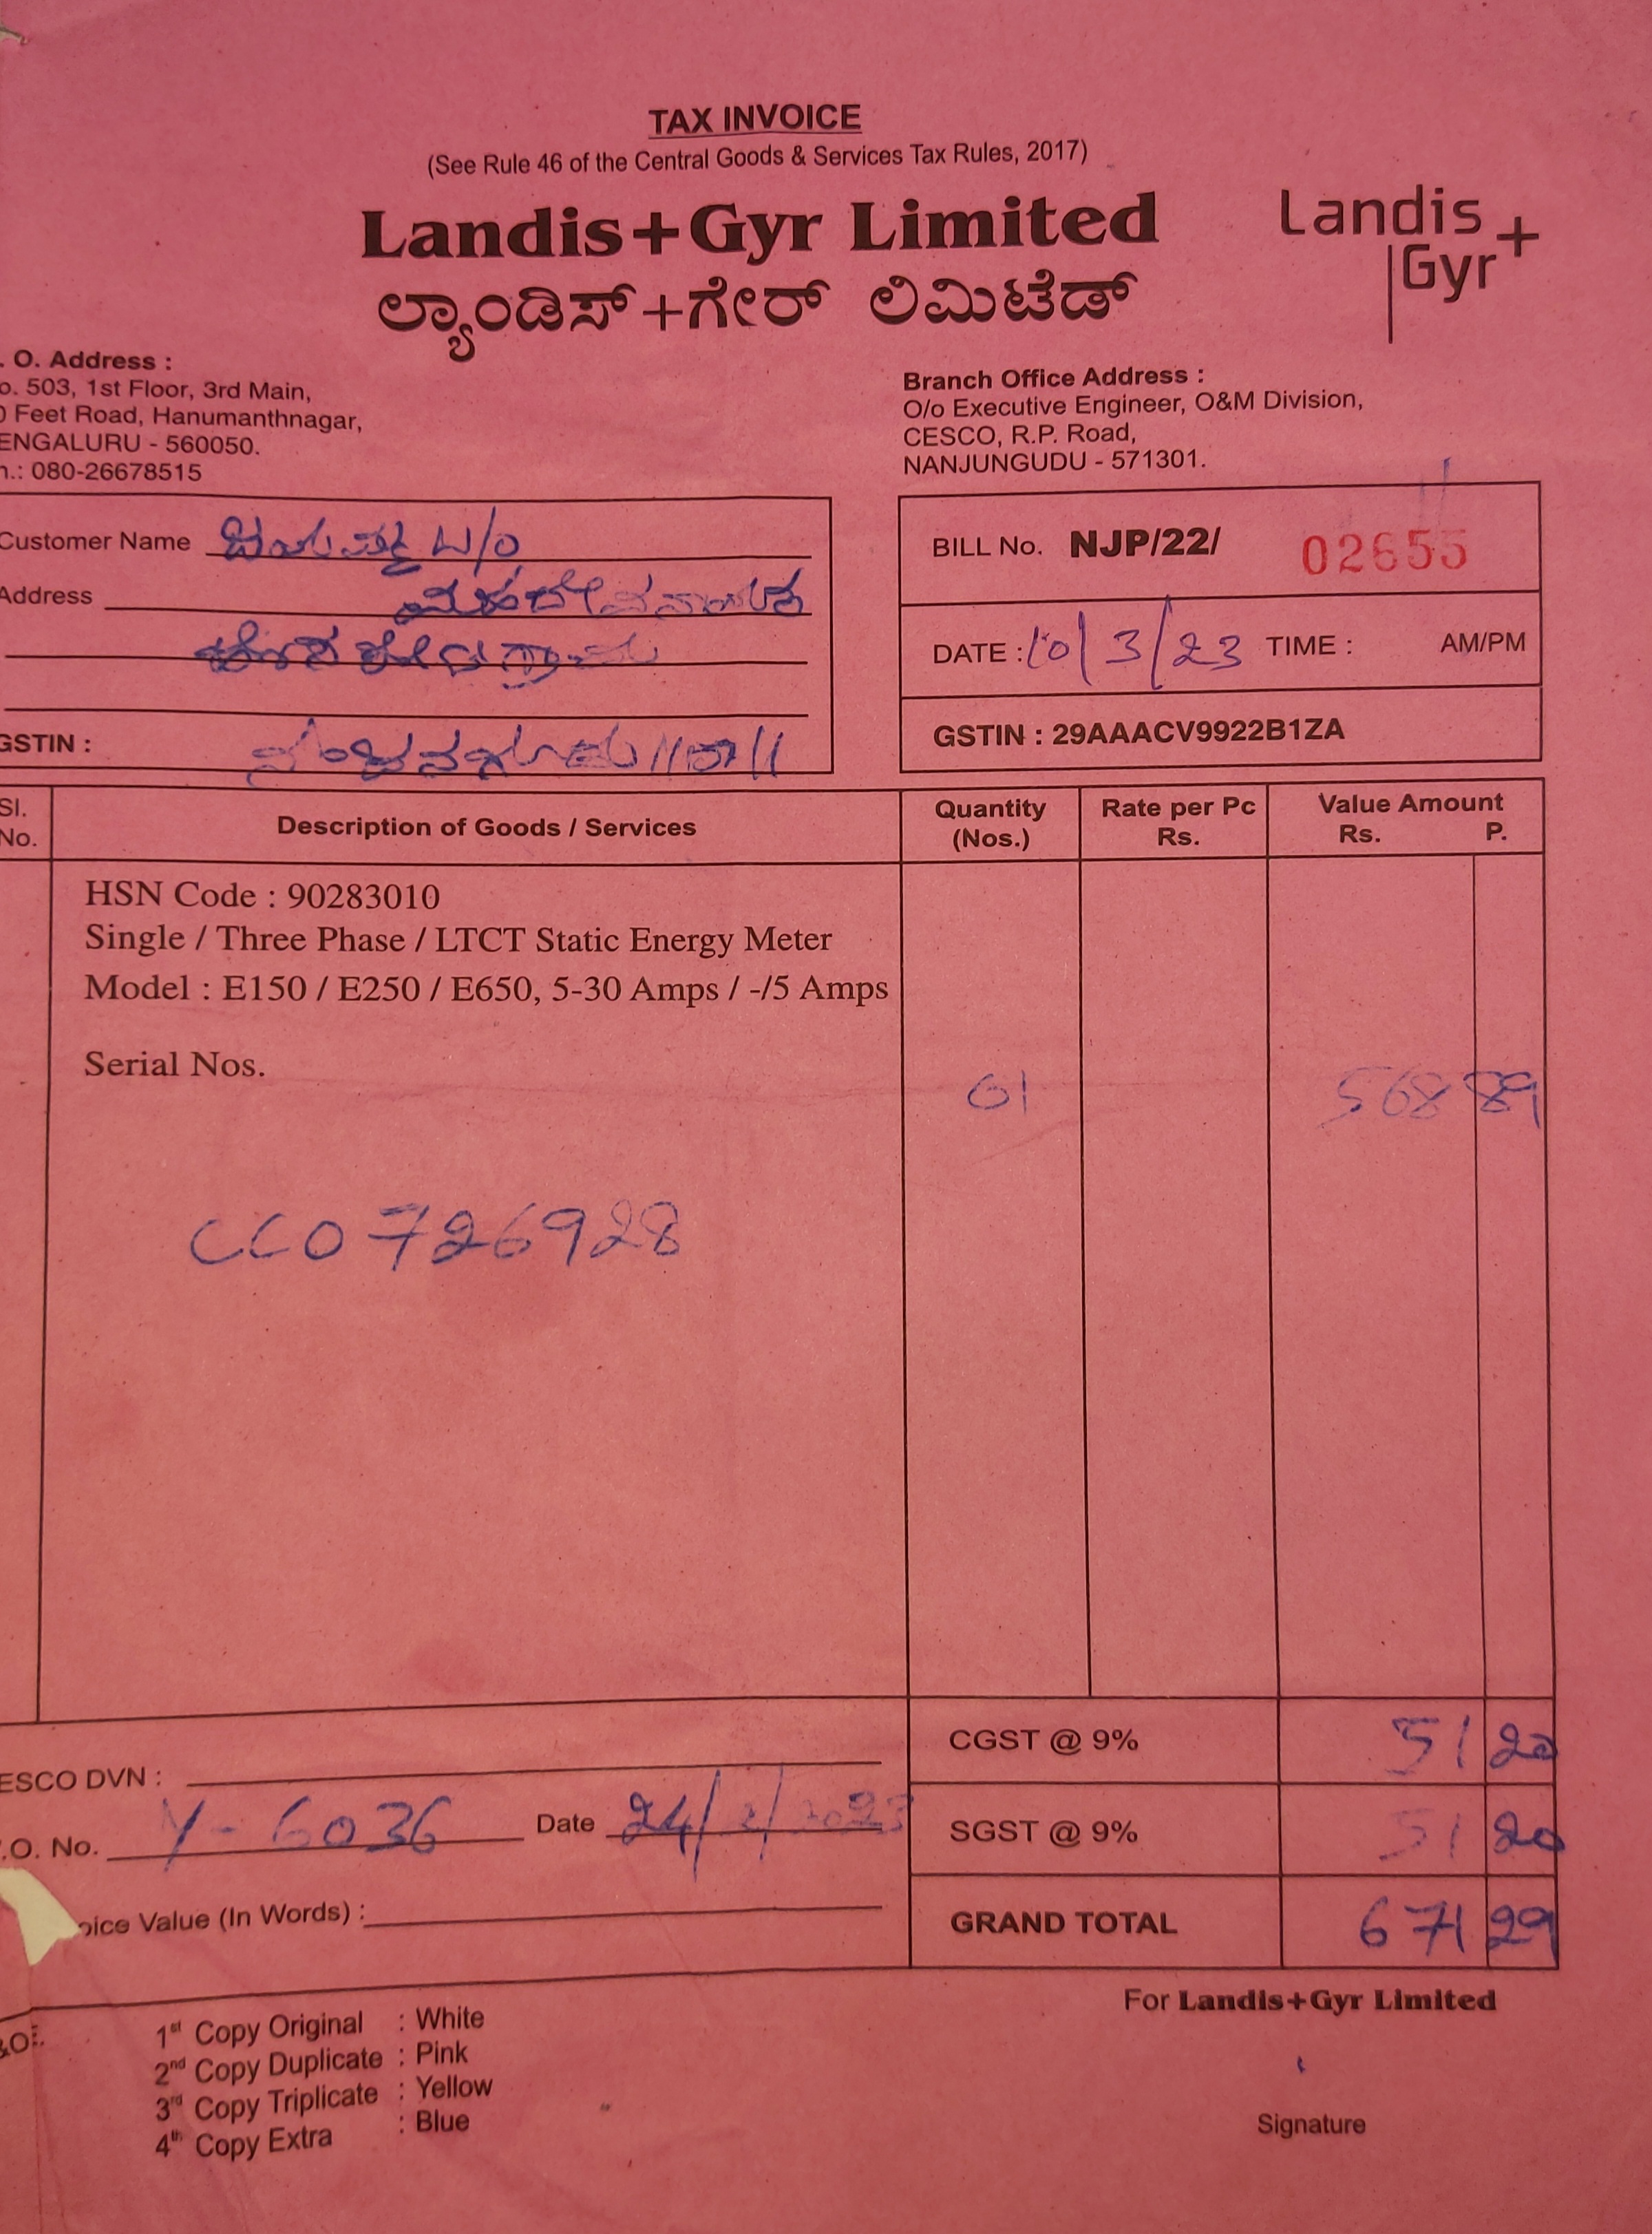 TAX INVOICE
(See Rule 46 of the Central Goods & Services Tax Rules, 2017)
Landis+Gyr Limited
ಲ್ಯಾಂಡಿಸ್+ಗೇರ್ ಲಿಮಿಟೆಡ್
Landis
Gyr+
. O. Address :
o. 503, 1st Floor, 3rd Main,
0 Feet Road, Hanumanthnagar,
ENGALURU - 560050.
n.: 080-26678515
Branch Office Address :
O/o Executive Engineer, O&M Division,
CESCO, R.P. Road,
NANJUNGUDU - 571301.
Customer Name
Address
GSTIN :
BILL No. NJP/22/ 02655
DATE : 10/3/23 TIME : AM/PM
GSTIN : 29AAACV9922B1ZA
Sl. No. Description of Goods / Services Quantity (Nos.) Rate per Pc Rs. Value Amount Rs. P.
HSN Code : 90283010
Single / Three Phase / LTCT Static Energy Meter
Model : E150 / E250 / E650, 5-30 Amps / -/5 Amps
Serial Nos.
01 568 89
CC0726928
CGST @ 9% 51 20
ESCO DVN :
.O. No. Y-6036 Date 24/2/2023
SGST @ 9% 51 20
oice Value (In Words) :
GRAND TOTAL 671 29
For Landis+Gyr Limited
&OE.
1st Copy Original : White
2nd Copy Duplicate : Pink
3rd Copy Triplicate : Yellow
4th Copy Extra : Blue
Signature